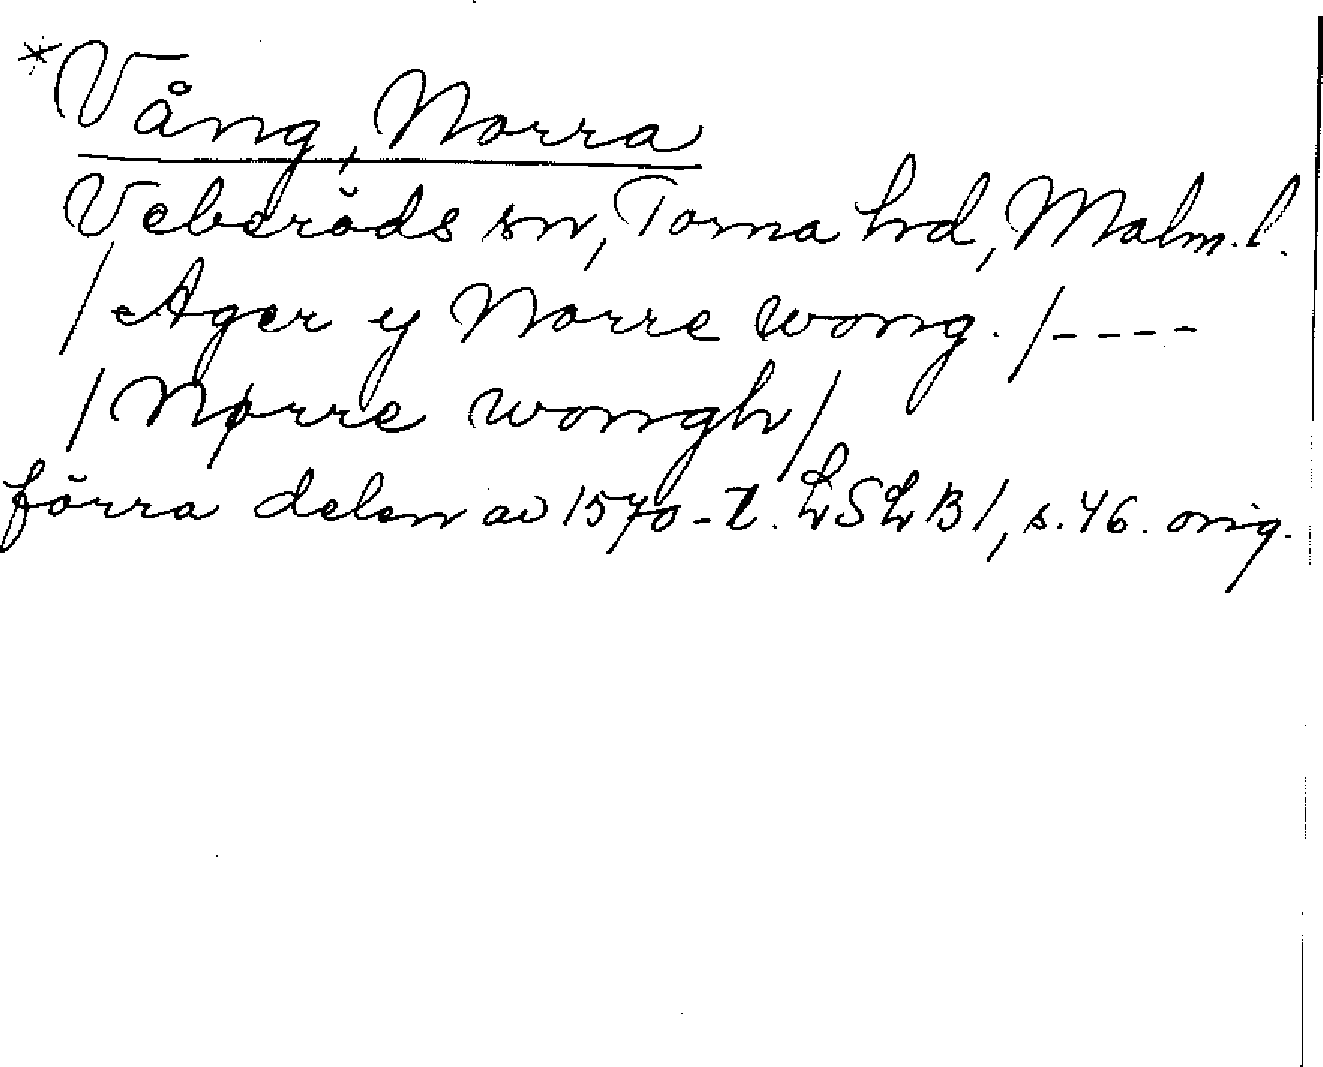 *Vång, Norra
Veberöds sn, Torna hd, Malm. l.
/Ager y Norre wong./----
/Nørre wongh/
förra delen av 1570-t. LSLB1, s. 46. orig.